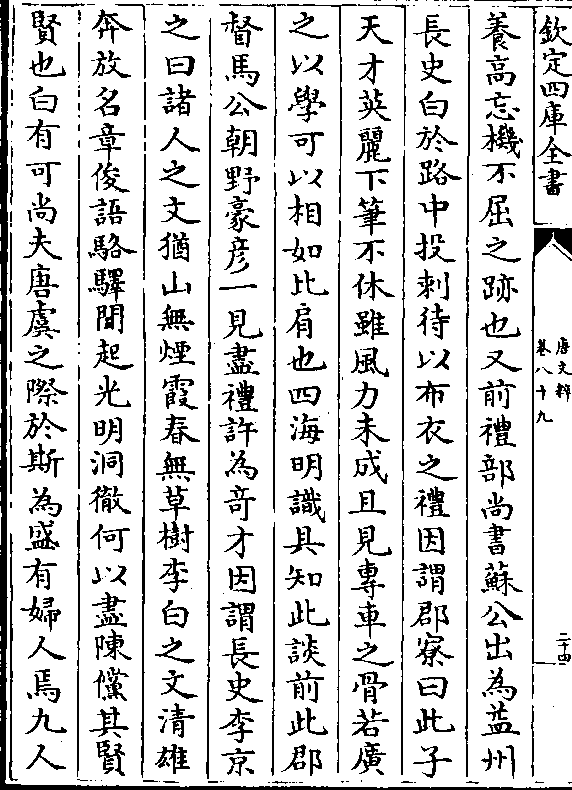 欽定四庫全書
唐文粹
卷八十九
二十四
養高忘機不屈之跡也又前禮部尚書蘇公出為益州
長史白於路中投刺待以布衣之禮因謂郡寮曰此子
天才英麗下筆不休雖風力未成且見專車之骨若廣
之以學可以相如比肩也四海明識具知此談前此郡
督馬公朝野豪彦一見盡禮許為竒才因謂長史李京
之曰諸人之文猶山無煙霞春無草樹李白之文清雄
奔放名章俊語駱驛間起光明洞徹何以盡陳儻其賢
賢也白有可尚夫唐虞之際於斯為盛有婦人焉九人